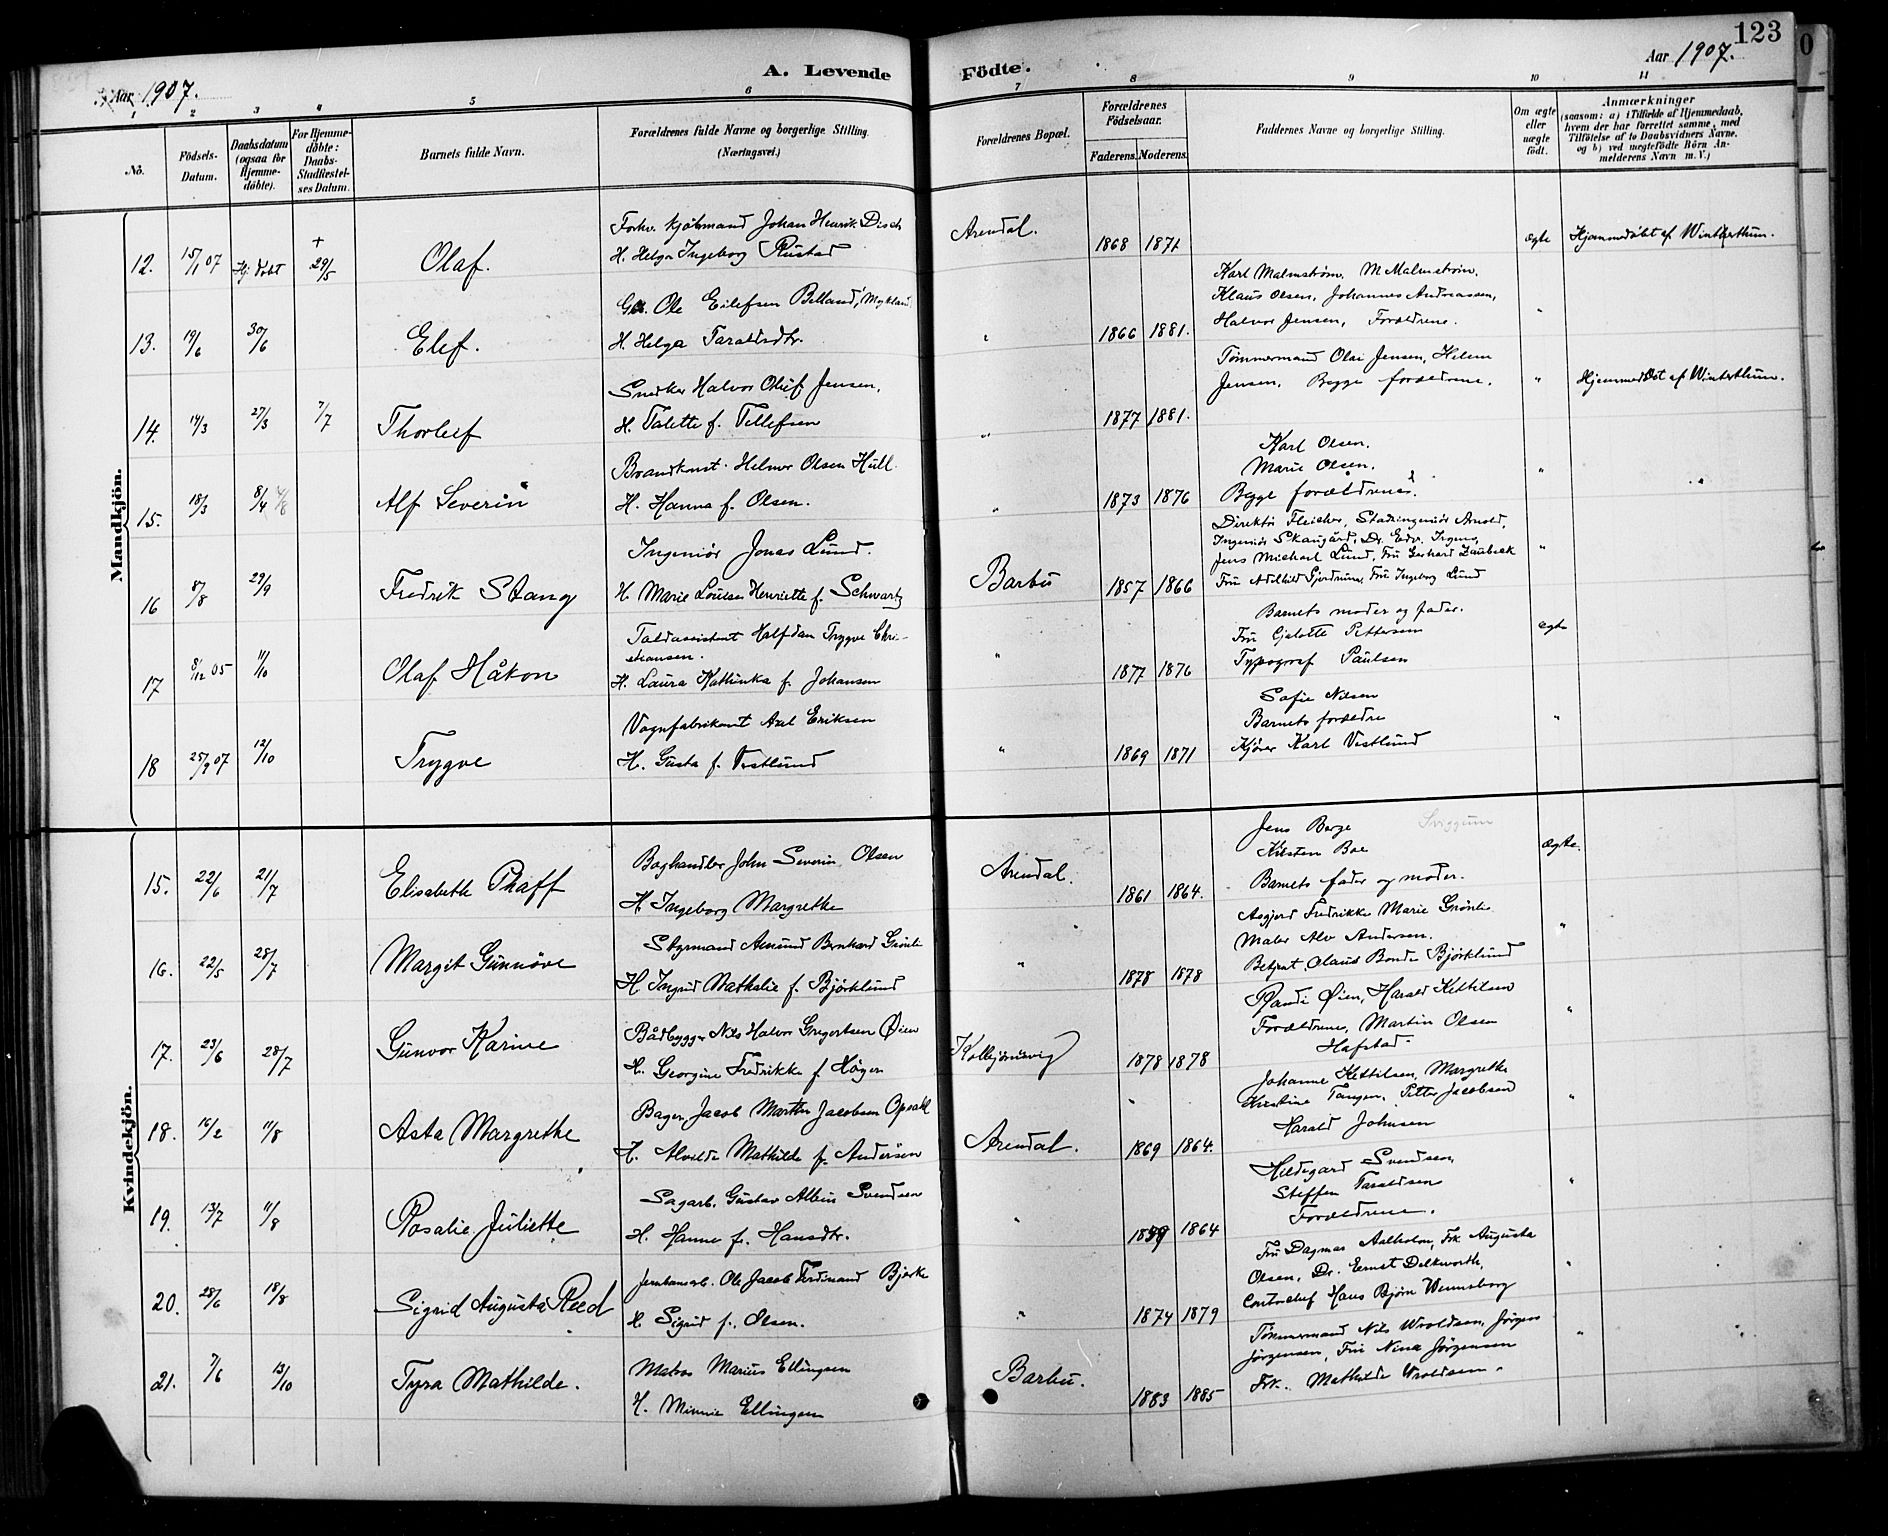 123
Aar 1907.
A. Levende Födte.
Aar 1907.
1 2 3 4 5 6 7 8 9 10 11
No.
Födsels-Datum.
Daabsdatum (ogsaa for Hjemme-döbte).
For Hjemme-döbte: Daabs-Stadfæstel-ses Datum.
Barnets fulde Navn.
Forældrenes fulde Navne og borgerlige Stilling. (Næringsvei.)
Forældrenes Bopæl.
Forældrenes Födselsaar.
Faderens. Moderens.
Faddernes Navne og borgerlige Stilling.
Om ægte eller uægte födt.
Anmærkninger
(saasom: a) i Tilfælde af Hjemmedaab, hvem der har forrettet samme, med Tilföielse af to Daabsvidners Navne. og b) ved uægtefödte Börn An-melderens Navn m. V.)
Mandkjön.
12. 15/1 07 Hj. döbt + 29/5 Olaf.
Forhv. Kjøbmand Johan Henrik Disch
H. Helga Ingeborg Rustad
Arendal. 1868 1871 ægte Hjemmedøbt af Winterthun.
13. 19/6 30/6 Elef.
Ole Eilefsen Belland, Mykland
H. Helga Taraldsdtr.
" 1866 1881.
Karl Malmstrøm, M Malmstrøm,
Klaus Olsen, Johannes Andreassen,
Halvor Jensen, Forældrene. "
14. 14/3 27/3 7/7 Thorleif
Snedker Halvor Oluf Jensen,
H. Talette f. Tellefsen
" 1877 1881.
Tømmermand Olai Jensen, Helene
Jensen, Begge forældrene. " Hjemmedøbt af Winterthun.
15. 18/3 8/4 4/8 Alf Severin
Brandkonst. Helmer Olsen Hüll
H. Hanna f. Olsen.
" 1873 1876
Karl Olsen.
Marie Olsen.
Begge forældrene. " "
16 8/8 29/9 Fredrik Stang
Ingeniør Jonas Lund.
H. Marie Louise Henriette f. Schwartz
Barbu 1857 1866
Direktør Fleicher, Stadsingeniør Arnold,
Ingeniør Skaugård, Dr. Edv. Irgens,
Jens Michael Lund, Fru Gerhard Zaubeck
Fru Adelhild Gjerdrum, Fru Ingeborg Lund "
17 8/12 05 11/10 Olaf Håkon
Toldassistent Halfdan Trygve Chri-
stiansen.
H. Laura Kathinka f. Johansen
" 1877 1876
Barnets moder og fader.
Fru Gjelotte Pettersen
Typograf Paulsen ægte
18 25/9 07 12/10 Trygve
Vognfabrikant Axel Eriksen
H. Gusta f. Vestlund
" 1869 1871
Sofie Nilsen
Barnets forældre
Kjører Karl Vestlund "
Kvindekjön.
15. 22/6 21/7 Elisabeth Phaff
Boghandler John Severin Olsen
H. Ingeborg Margrethe
Arendal. 1861 1864.
Jens Berge Sviggum
Kirsten Boe
Barnets fader og moder. ægte.
16. 22/5 28/7 Margit Gunnöve
Styrmand Amund Bernhard Grönli
H. Ingrid Mathalie f. Bjørklund
" 1878 1878
Asgjerd Fredrikke Marie Grönli
Maler Alv Andersen.
Betjent Olaus Bonde Bjørklund "
17. 23/6 28/7 Gunvor Karine
Bådbygger Nils Halvor Gregertsen Øien
H. Georgine Fredrikke f. Høger
Kolbjørnsvig 1878 1878
Randi Øien, Harald Kettilsen
Forældrene, Martin Olsen
Hafstad. "
18. 16/2 11/8 Asta Margrethe
Bager Jacob Martin Jacobsen Opsahl
H. Alvilde Mathilde f. Andersen
Arendal. 1869 1864.
Johanne Kettilsen, Margrethe
Kirstine Tangen, Petter Jacobsen
Harald Johnsen "
19. 13/7 11/8 Rosalie Juliette
Sagarb. Gustav Albin Svendsen
H. Hanne f. Hansdtr.
" 1859 1864
Hildegard Svendsen,
Steffen Taraldsen
Forældrene. "
20. 28/6 18/8 Sigrid Augusta Reed
Jernbanearb. Ole Jacob Ferdinand Bjerke
H. Sigrid f. Olsen.
" 1874 1879
Fru Dagmar Aalholm, Frk Augusta
Olsen, Dr. Ernst Dedkworth,
Contorchef Hans Bjørn Wennsborg "
21. 7/6 13/10 Tyra Mathilde.
Matros Marius Ellingsen
H. Minnie Ellingsen
Barbu. 1883 1885
Tømmermand Nils Wroldsen, Jørgen
Jørgensen, Fru Nina Jørgensen
Frk. Mathilde Wroldsen. "